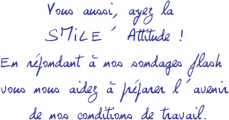 Vous aussi, ayez la
SMiLE ´ Attitude !
En répondant à nos sondages flash
vous nous aidez à préparer l´avenir
de nos conditions de travail.